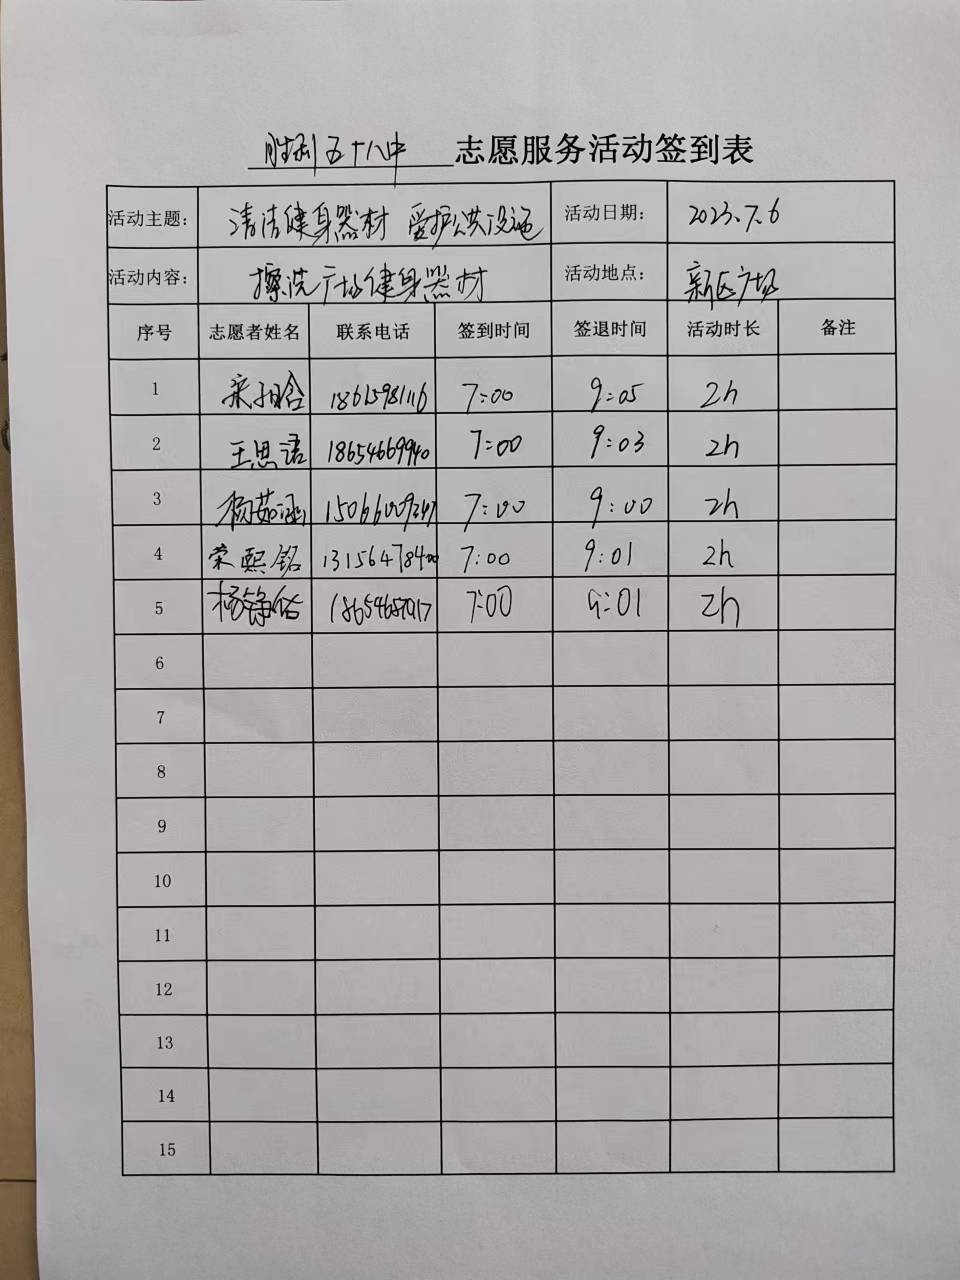 胜利五十八中 志愿服务活动签到表
活动主题: 清洁健身器材 爱护公共设施 活动日期: 2023.7.6
活动内容: 擦洗广场健身器材 活动地点: 新区广场
序号 志愿者姓名 联系电话 签到时间 签退时间 活动时长 备注
1 7:00 9:05 2h
2 王思语 18654669940 7:00 9:03 2h
3 杨茹涵 7:00 9:00 2h
4 荣熙铭 7:00 9:01 2h
5 7:00 9:01 2h
6
7
8
9
10
11
12
13
14
15